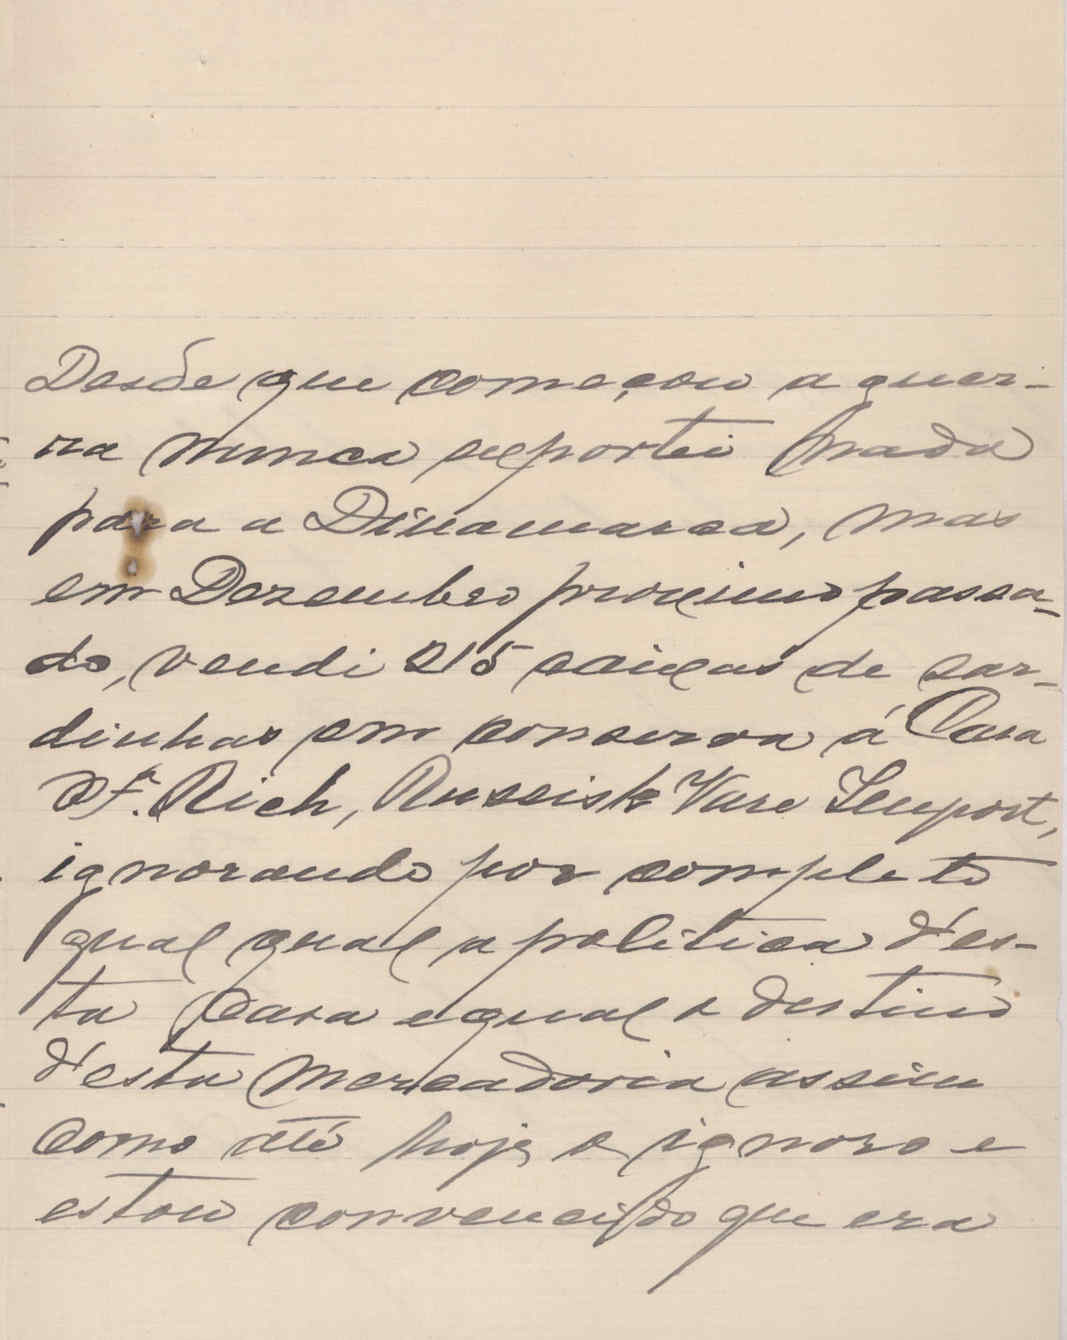 Desde que começou a guer-
ra nunca exportei nada
para a Dinamarca, mas
em Dezembro proximo passa-
do, vendi 215 caixas de sar-
dinhas em conserva á Casa
Rich, Russisk Vare Import,
ignorando por completo
qual qual a politica d'es-
ta Casa e qual o destino
d'esta mercadoria assim
como até hoje o ignoro e
estou convencido que era